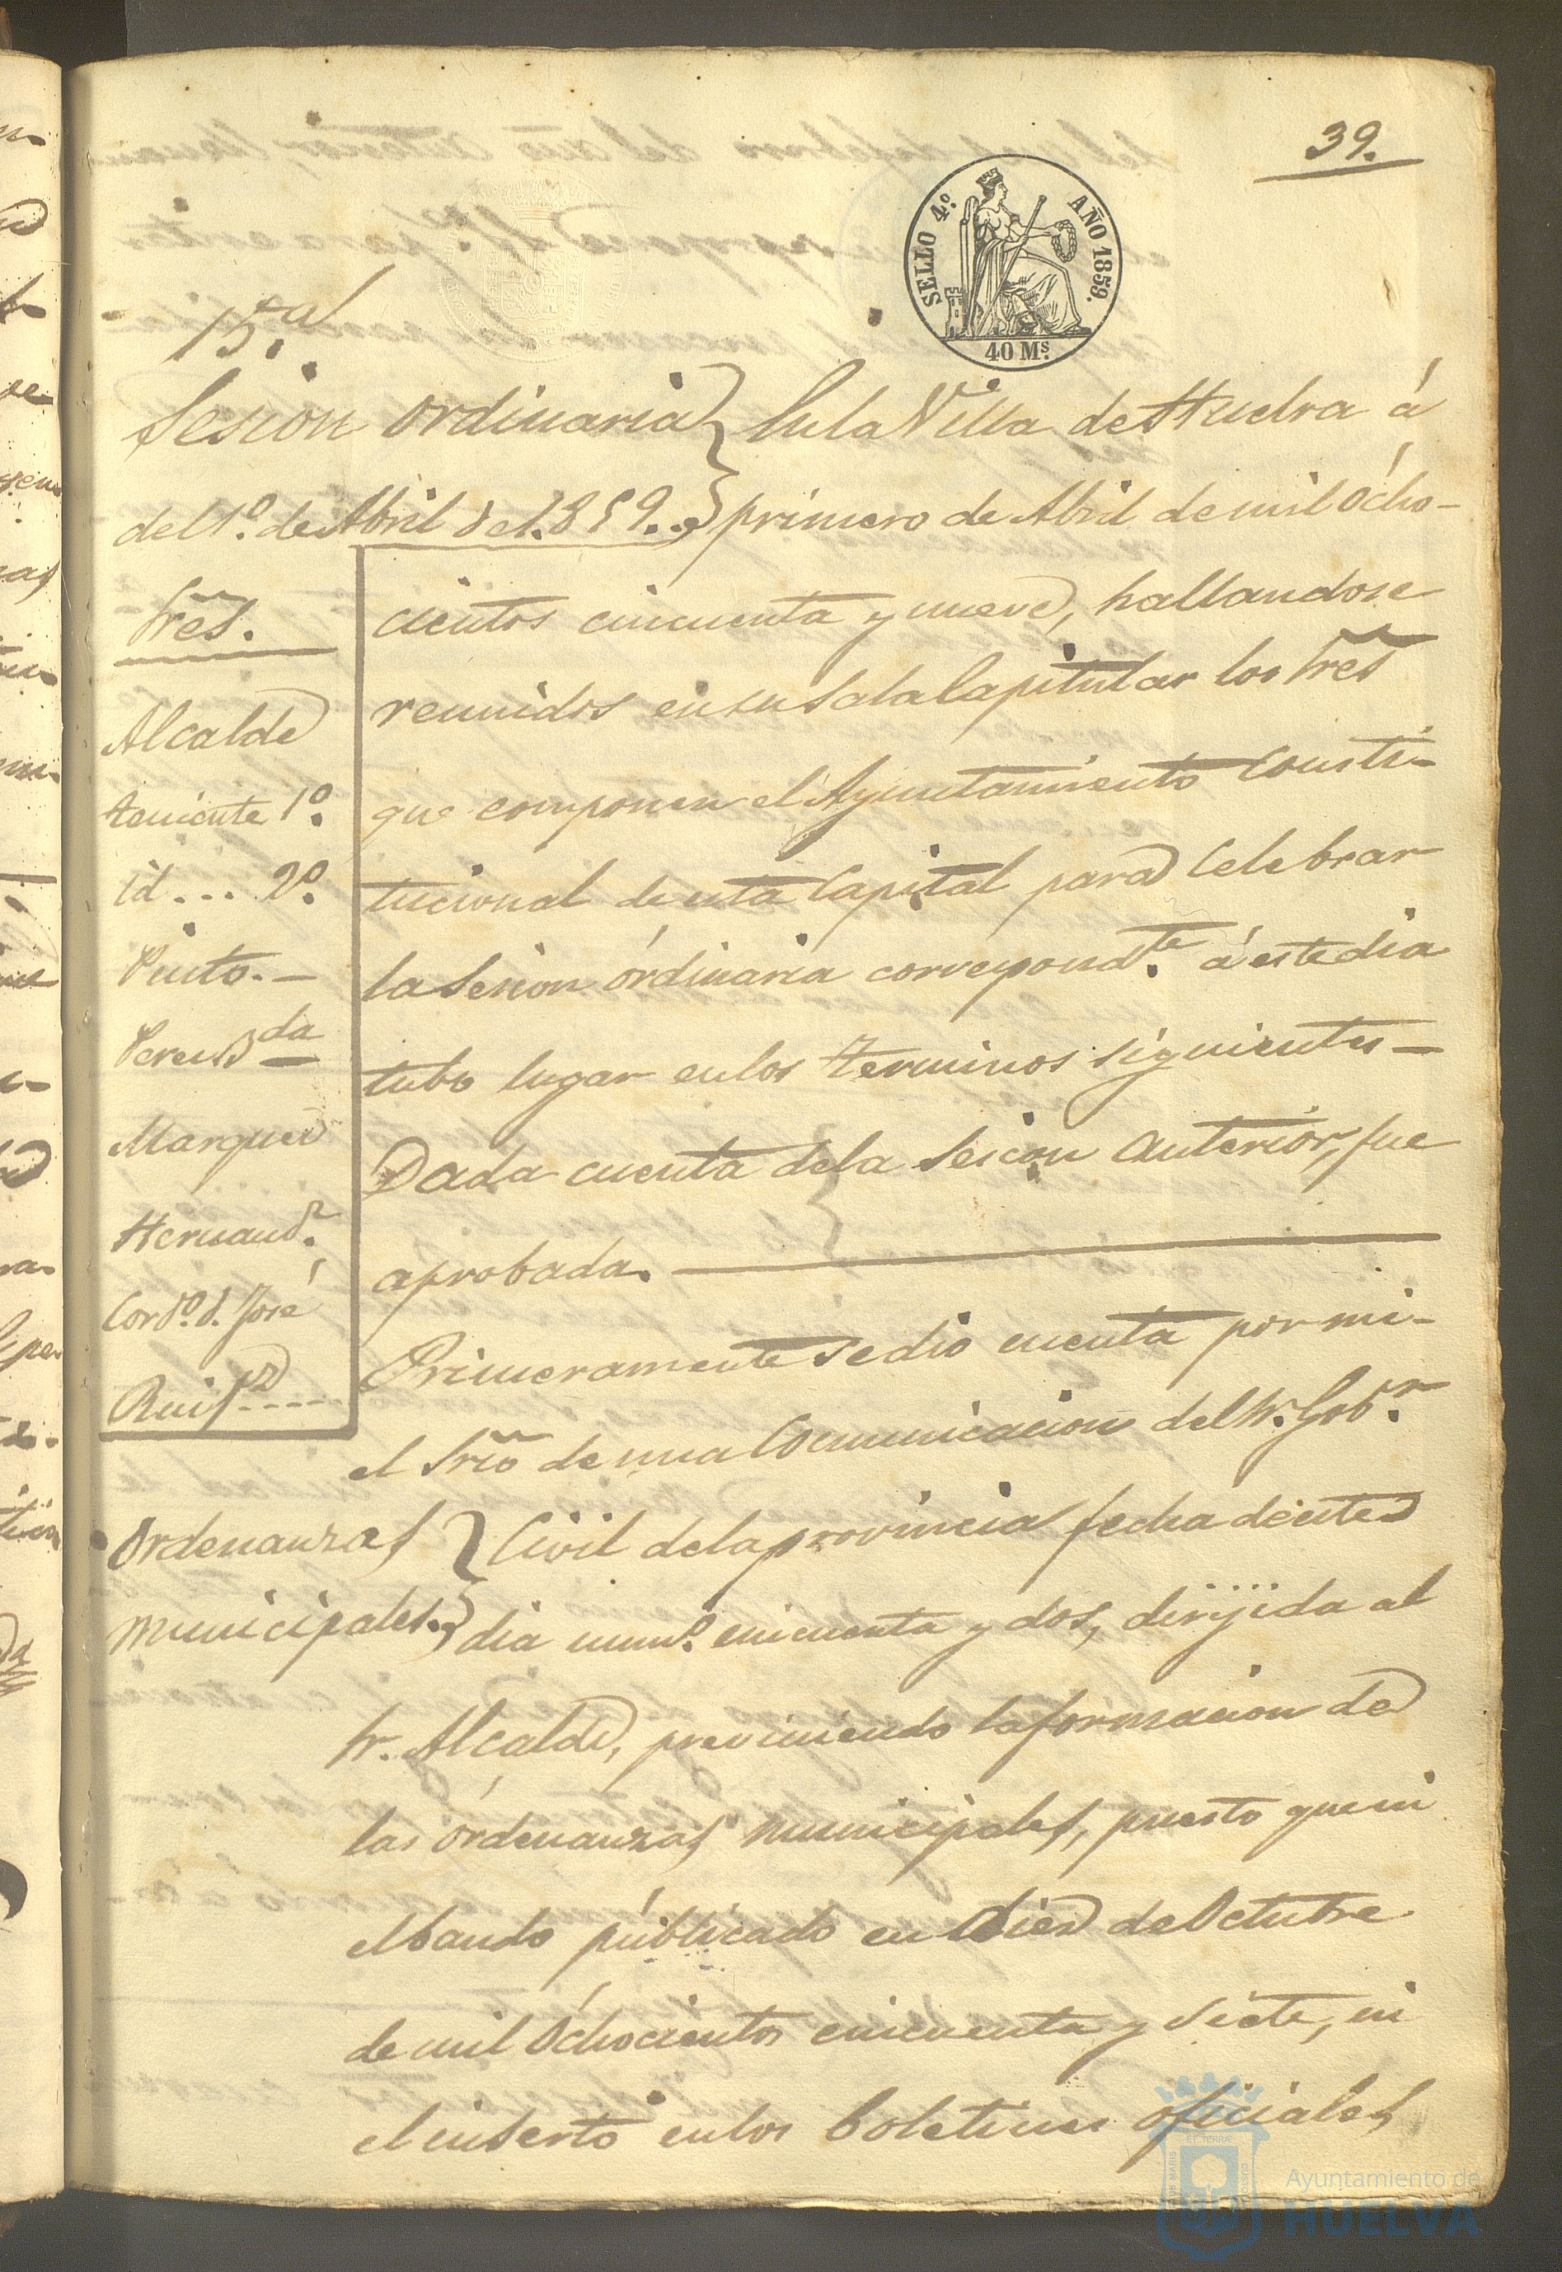 39.
SELLO 4º. AÑO 1859.
40 Ms.
15.ª
Sesion ordinaria
del 1º. de Abril de 1.859..
Sres.
Alcalde
teniente 1º.
id... 2º.
Pinto.-
Marquez
Hernandz.
Cordo. d. José
En la Villa de Huelva á
primero de Abril de mil ócho-
cientos cincuenta y nueve, hallandose
reunidos en su Sala Capitular los Sres
que componen el Ayuntamiento Consti-
tucional de esta Capital para Celebrar
la Sesion órdinaria correspondte. á este dia
tubo lugar en los terminos siguientes-
Dada cuenta de la Sesion anterior, fue
aprobada.
Primeramente se dió cuenta por mi-
el Srio de una Comunicacion del Sr. Gobr.
Ordenanzas
municipales..
Civil de la provincia fecha de este
dia numo. cincuenta y dos, dirijida al
Sr. Alcalde, previniendo la formacion de
las órdenanzas municipales, puesto que ni
el bando público en diez de Octubre
de mil óchocientos cincuenta y siete, ni
el inserto en los boletines oficiales
Ayuntamiento de
HUELVA